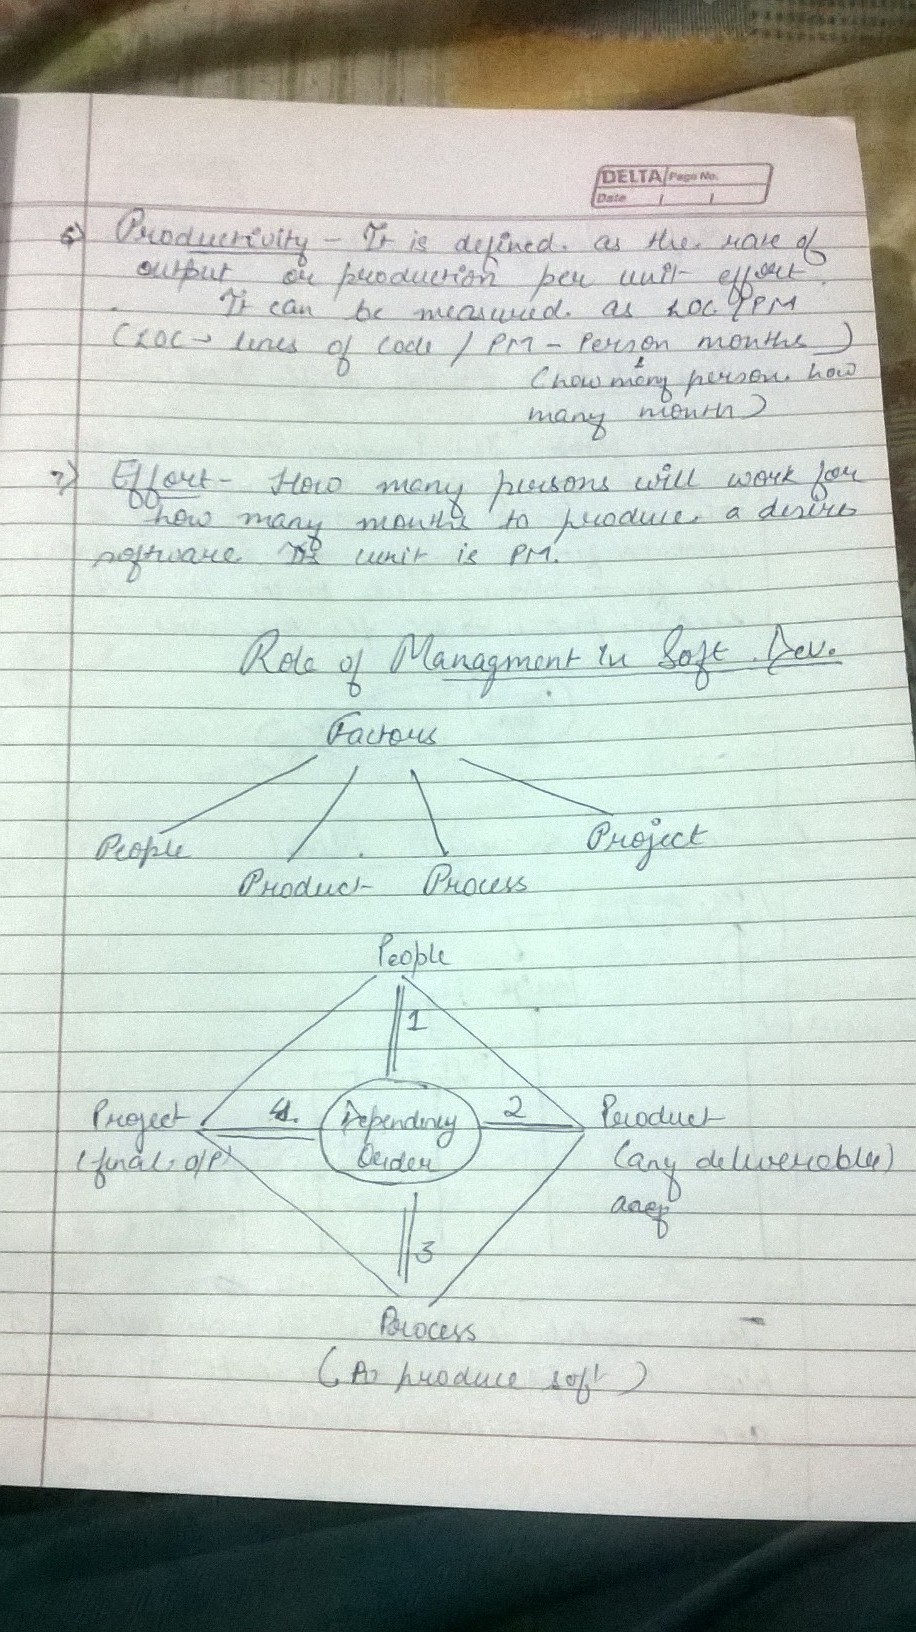 DELTA Page No.
Date
6) Productivity - It is defined. as the. rate of
output or production per unit effort.
It can be measured. as LOC/PM
(LOC → lines of code / PM - Person months)
(how many person. how
many month)
7) Effort - How many persons will work for
how many months to produce. a desire
software. Its unit is PM.
Role of Managment in Soft. Dev.
Factors
People
Product
Process
Project
People
1
Project
4.
Dependency
2
Product
(final. o/p)
Order
(any deliverable)
3
Process
( produce soft)